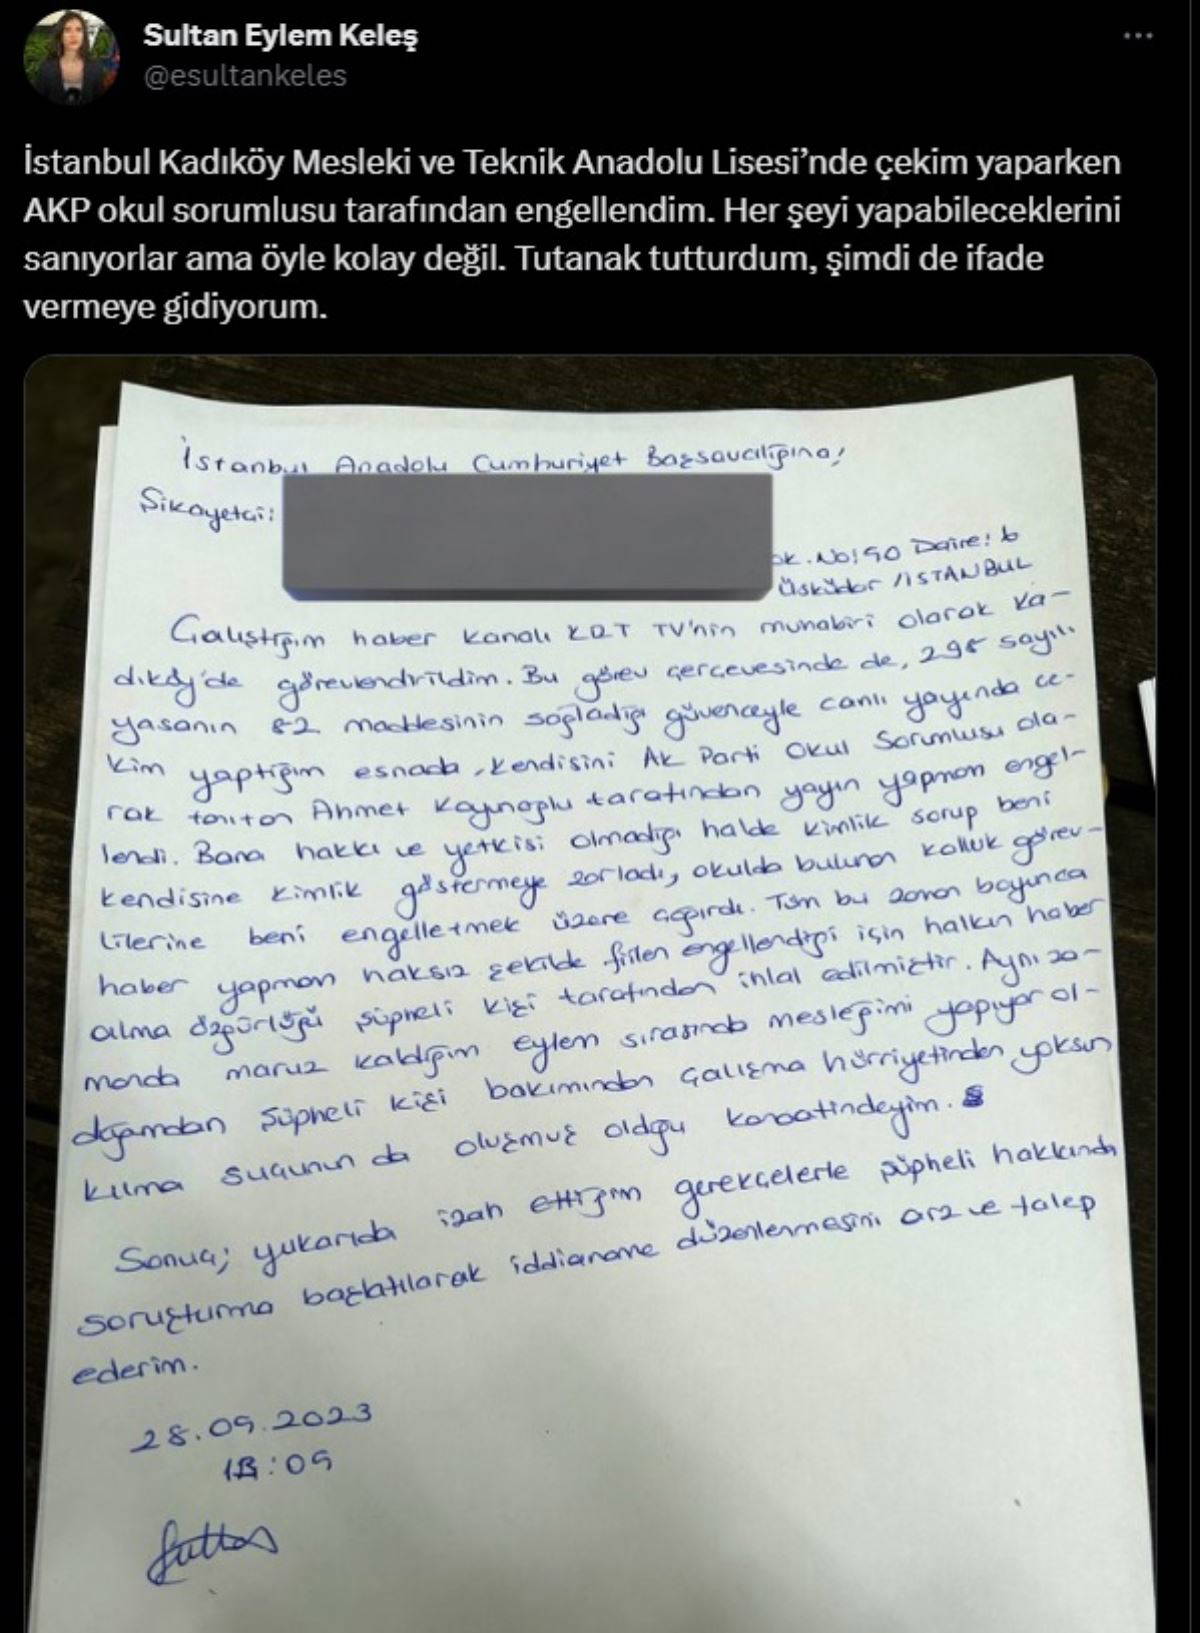 Sultan Eylem Keleş
@esultankeles
İstanbul Kadıköy Mesleki ve Teknik Anadolu Lisesi'nde çekim yaparken
AKP okul sorumlusu tarafından engellendim. Her şeyi yapabileceklerini
sanıyorlar ama öyle kolay değil. Tutanak tutturdum, şimdi de ifade
vermeye gidiyorum.
İstanbul Anadolu Cumhuriyet Başsavcılığına;
Şikayetçi:
ok. No:90 Daire: 6
Üsküdar /İSTANBUL
Çalıştığım haber kanalı KRT TV'nin muhabiri olarak Ka-
dıköy'de görevlendirildim. Bu görev çerçevesinde de, 298 sayılı
yasanın 82 maddesinin sağladığı güvenceyle canlı yayında çe-
kim yaptığım esnada, kendisini Ak Parti Okul Sorumlusu ola-
rak tanıtan Ahmet Kaynoğlu tarafından yayın yapmam engel-
lendi. Bana hakkı ve yetkisi olmadığı halde kimlik sorup beni
kendisine kimlik göstermeye zorladı, okulda bulunan kolluk görev-
lilerine beni engelletmek üzere çağırdı. Tüm bu zaman boyunca
haber yapmam haksız şekilde fiilen engellendiği için halkın haber
alma özgürlüğü şüpheli kişi tarafından ihlal edilmiştir. Aynı za-
manda maruz kaldığım eylem sırasında mesleğimi yapıyor ol-
duğumdan şüpheli kişi bakımından çalışma hürriyetinden yoksun
kılma suçunun da oluşmuş olduğu kanaatindeyim.
Sonuç; yukarıda izah ettiğim gerekçelerle şüpheli hakkında
soruşturma başlatılarak iddianame düzenlenmesini arz ve talep
ederim.
28.09.2023
:09